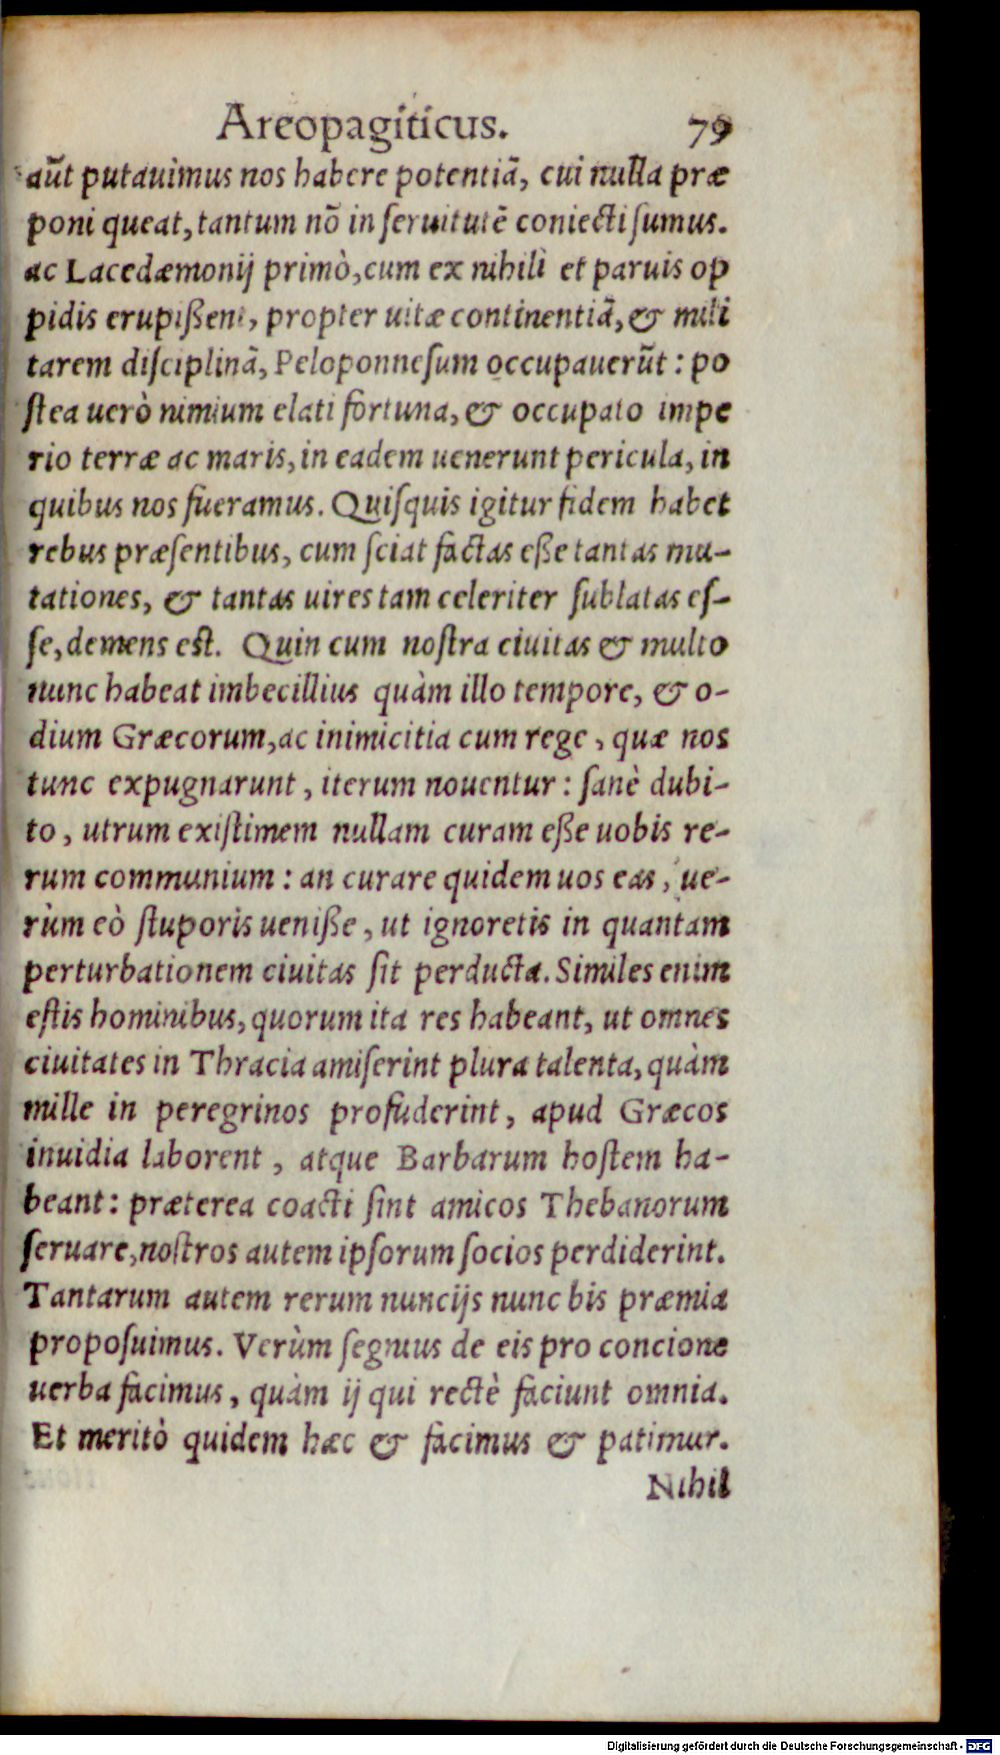 Areopagiticus. 79
aūt putauimus nos habere potentiā, cui nulla præ
poni queat, tantum nō in ſeruitutē coniecti ſumus.
ac Lacedæmonij primò, cum ex nihili et paruis op
pidis erupißent, propter uitæ continentiā, & mili
tarem diſciplinā, Peloponneſum occupauerūt : po
ſtea uerò nimium elati fortuna, & occupato impe
rio terræ ac maris, in eadem uenerunt pericula, in
quibus nos fueramus. Quiſquis igitur fidem habet
rebus præſentibus, cum ſciat factas eße tantas mu-
tationes, & tantas uires tam celeriter ſublatas eſ-
ſe, demens est. Quin cum noſtra ciuitas & multo
nunc habeat imbecillius quàm illo tempore, & o-
dium Græcorum, ac inimicitia cum rege, quæ nos
tunc expugnarunt, iterum nouentur : ſanè dubi-
to, utrum exiſtimem nullam curam eße uobis re-
rum communium : an curare quidem uos eas, ue-
rùm eò ſtuporis ueniße, ut ignoretis in quantam
perturbationem ciuitas ſit perducta. Similes enim
eſtis hominibus, quorum ita res habeant, ut omnes
ciuitates in Thracia amiſerint plura talenta, quàm
mille in peregrinos profuderint, apud Græcos
inuidia laborent, atque Barbarum hoſtem ha-
beant : præterea coacti ſint amicos Thebanorum
ſeruare, noſtros autem ipſorum ſocios perdiderint.
Tantarum autem rerum nuncijs nunc bis præmia
propoſuimus. Verùm ſegnius de eis pro concione
uerba facimus, quàm ij qui rectè faciunt omnia.
Et meritò quidem hæc & facimus & patimur.
Nihil
Digitalisierung gefördert durch die Deutsche Forschungsgemeinschaft - DFG